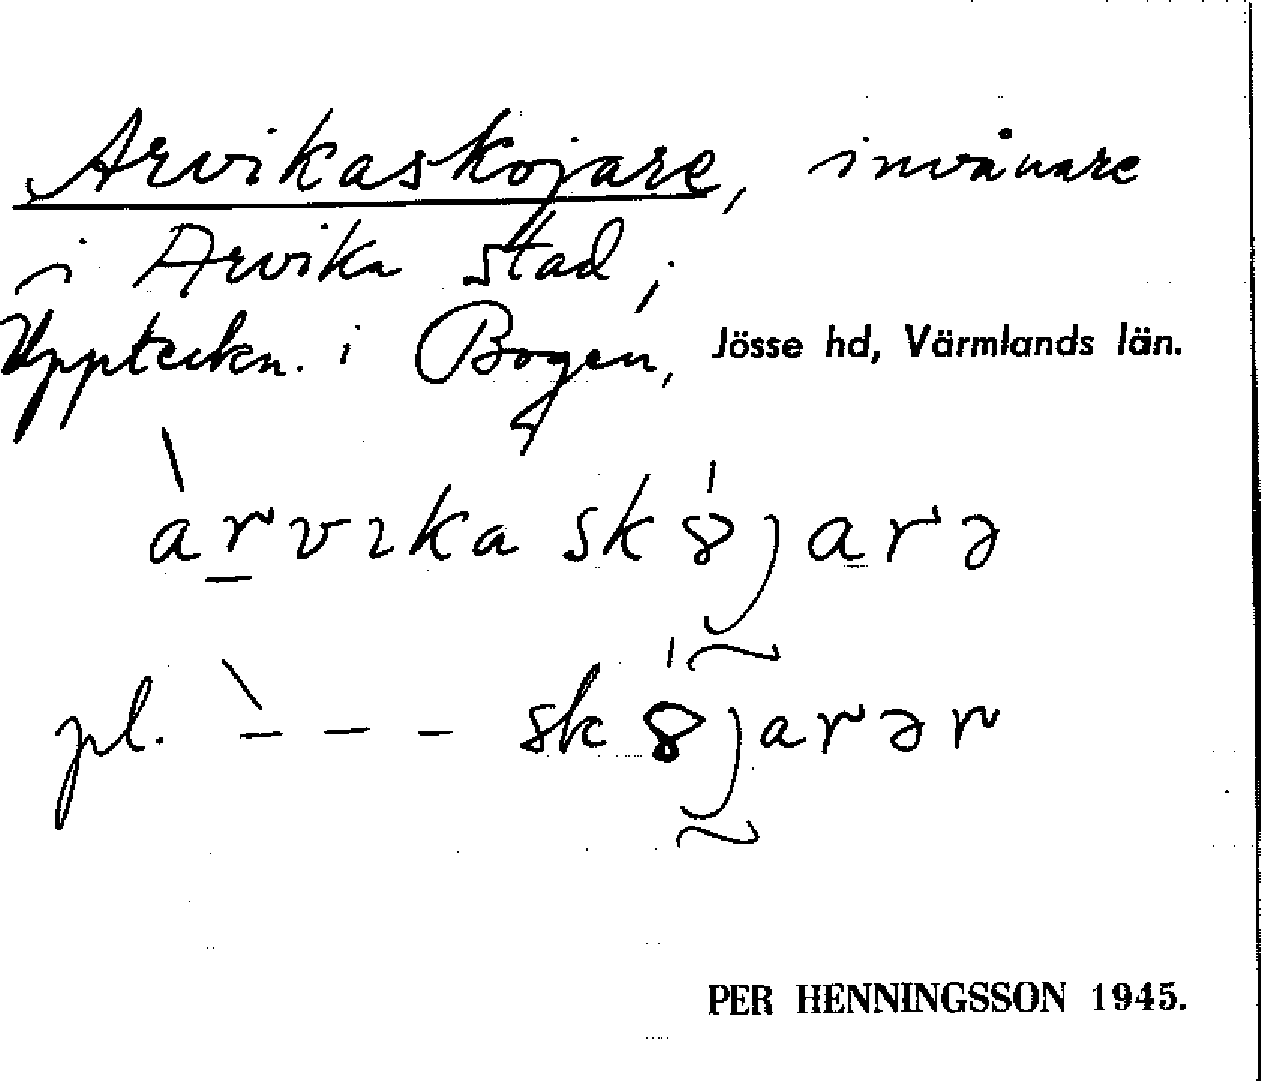 Arvikaskojare, invånare
i Arvika stad;
Uppteckn. i Bogen, Jösse hd, Värmlands län.
àr̲vıkask8́ja̲rə
pl. `– – – sk8́jarər
PER HENNINGSSON 1945.